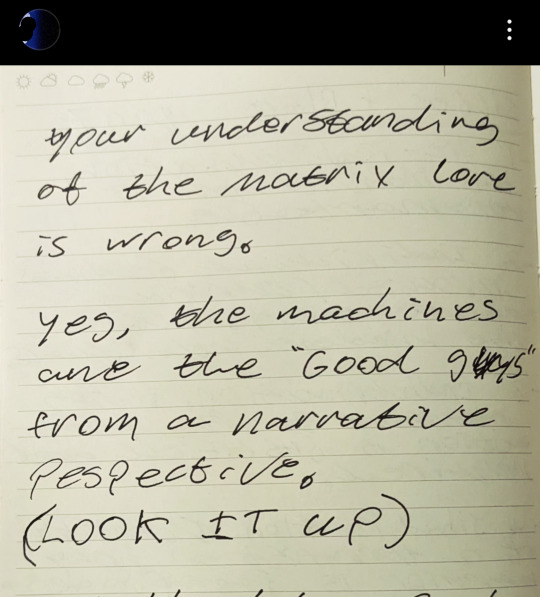 your understanding
of the matrix lore
is wrong.
yes, the machines
are the "Good guys"
from a narrative
Pespective.
(LOOK IT UP)